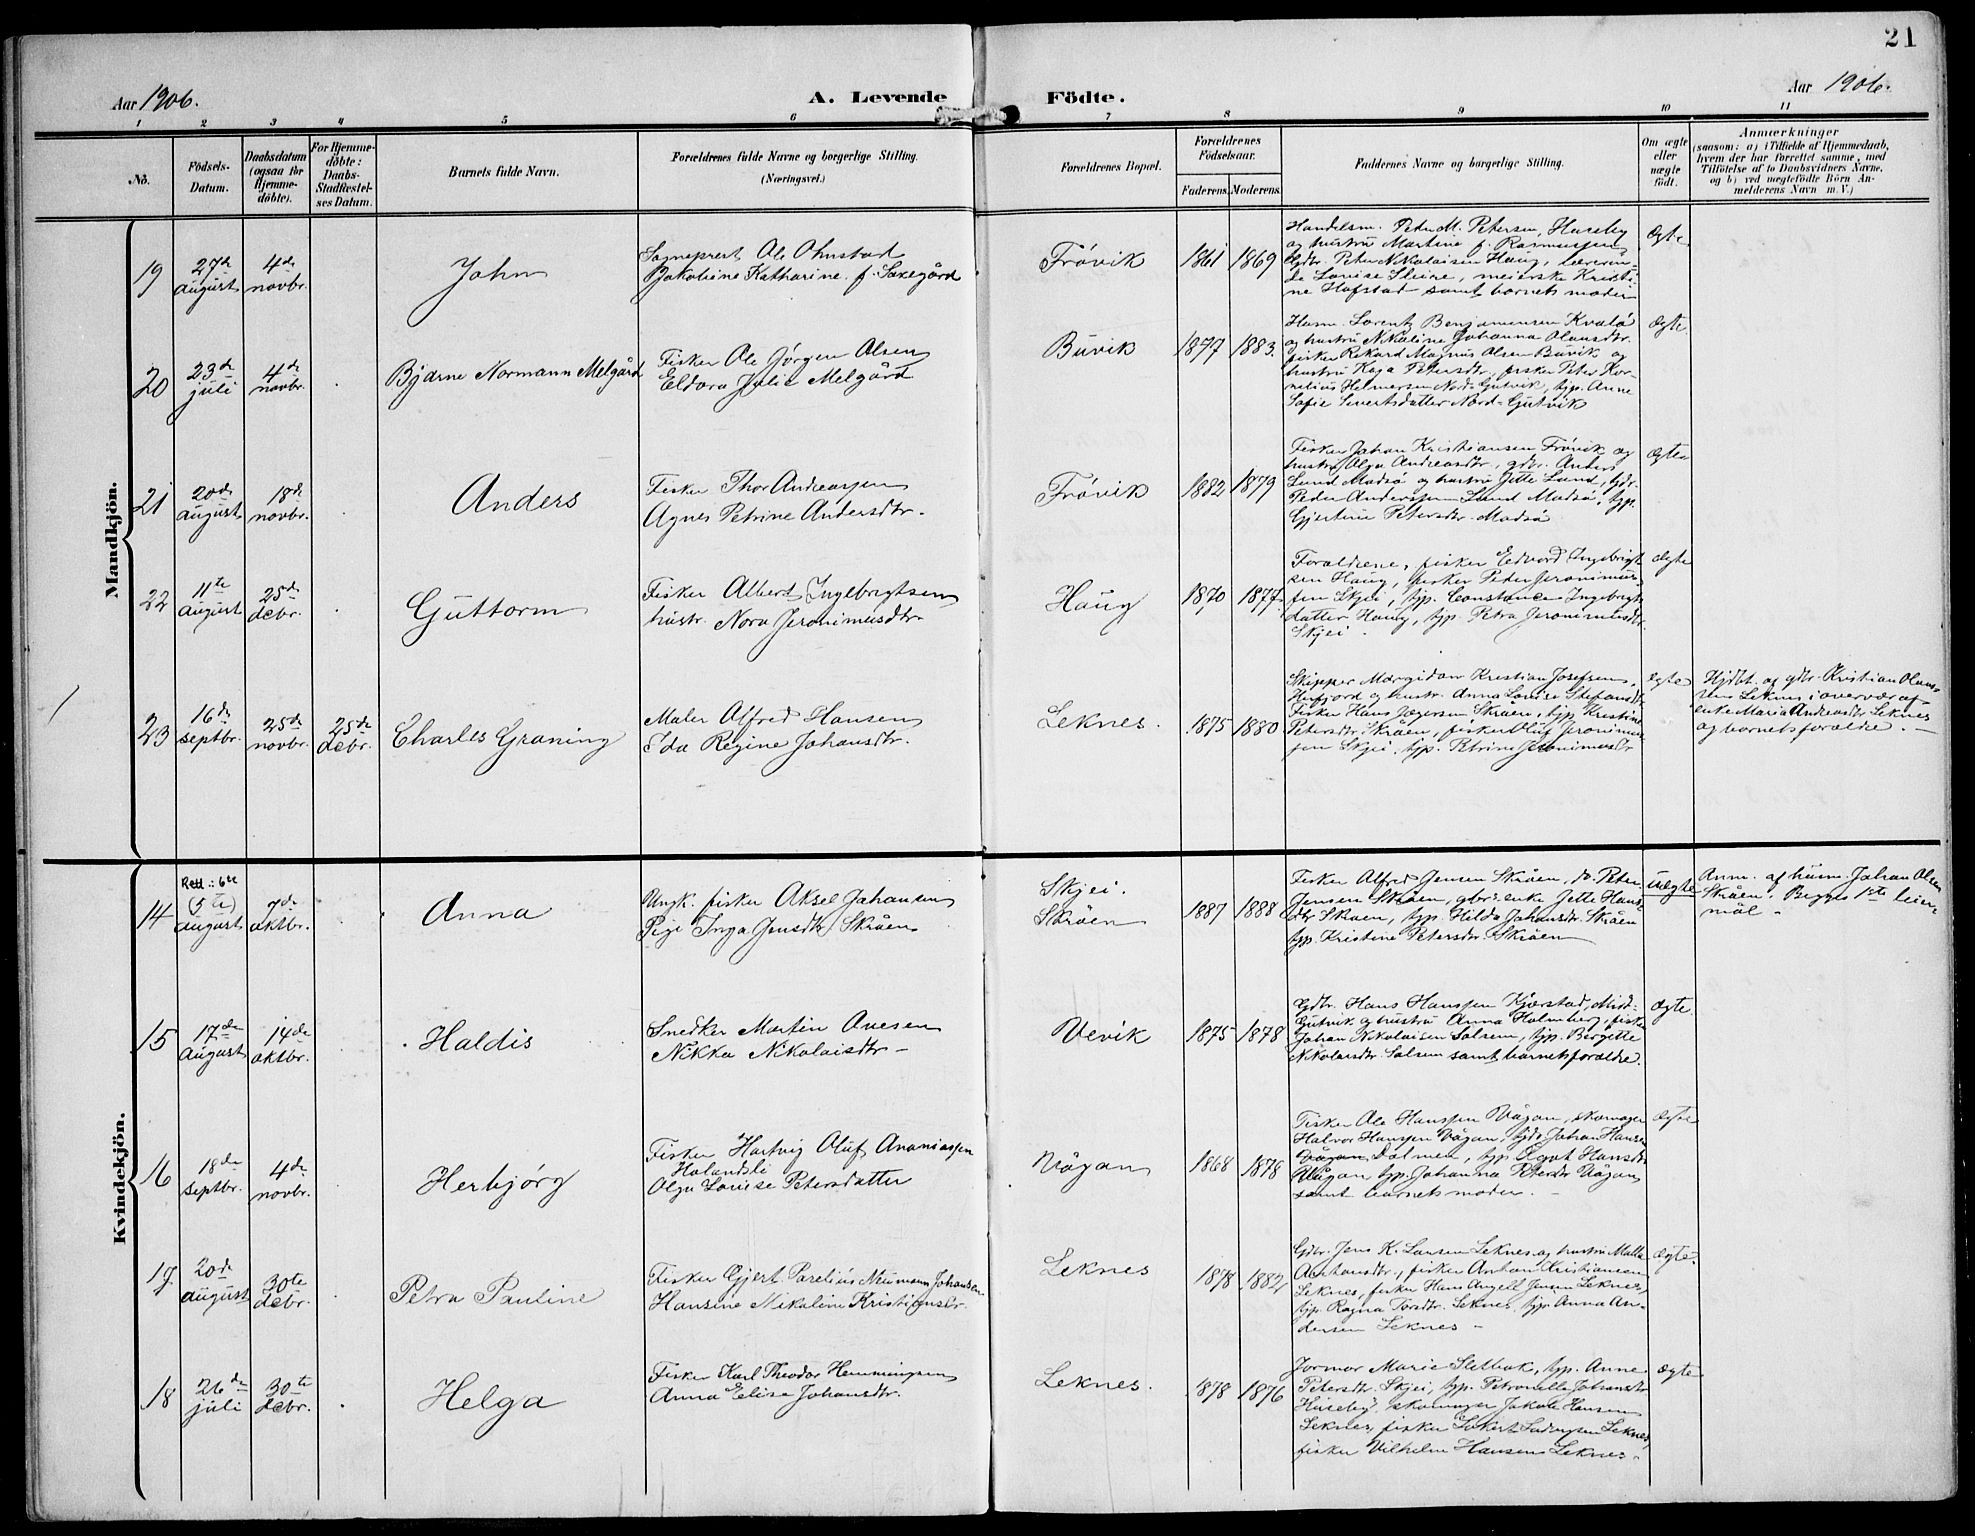 21
Aar 1906.
A. Levende Födte.
Aar 1906.
1 2 3 4 5 6 7 8 9 10 11
No.
Födsels-
Datum.
Daabsdatum
(ogsaa for
Hjemme-
döbte).
For Hjemme-
döbte:
Daabs-
Stadfæstel-
ses Datum.
Barnets fulde Navn.
Forældrenes fulde Navne og borgerlige Stilling.
(Næringsvei.)
Forældrenes Bopæl.
Forældrenes
Födselsaar.
Faderens. Moderens.
Faddernes Navne og borgerlige Stilling.
Om ægte
eller
uægte
födt.
Anmærkninger
(saasom: a) i Tilfælde af Hjemmedaab,
hvem der har forrettet samme, med
Tilföielse af to Daabsvidners Navne,
og b) ved uægtefödte Börn An-
melderens Navn m. V.)
Mandkjön.
19
27de
august
4de
novbr.
John
Sogneprest Ole Ohnstad
Jakobine Katharine f. Saxegård
Frövik
1861 1869
Handelsm. Peder M. Petersen, Huseby
og hustru Martine f. Rasmussen
Gdbr. Peter Nikolaisen Haug, lærerin-
de Louise Sleire, meierske Kristi-
ne Hofstad samt barnets moder
Ægte
20
23de
juli
4de
novbr.
Bjarne Normann Melgård
Fisker Ole Jörgen Olsen
Eldora Julie Melgård
Buvik
1877 1883.
Husm. Lorentz Benjaminsen Kvalö
og hustru Nikoline Johanna Olausdtr.
fisker Rikard Magnus Olsen Buvik og
hustru Kaja Petersdtr, fisker Peter Kor-
nelius Helmersen Nord-Gutvik, tjp. Anne
Sofie Sivertsdatter Nord-Gutvik
Ægte
21
20de
august
18de
novbr.
Anders
Fisker Thor Andreassen
Agnes Petrine Andersdtr.
Frövik
1882 1879
Fisker Johan Kristiansen Frövik og
hustru Olga Andreasdtr, gdbr. Anders
Lund Madsö og hustru Jitte Lund, gdr.
Peder Anderssen Lund Madsö, tjp.
Gjertine Petersdtr. Madsö
Ægte
22
11te
august
25de
debr.
Guttorm
Fisker Albert Ingebrigtsen
hustr. Nora Jeronimusdtr.
Haug
1870 1877
Forældrene, fisker Edvard Ingebrigt-
sen Haug, fisker Peder Jeronimus-
sen Skjei, tjp. Constance Ingebrigts-
datter Haug, tjp. Petra Jeronimusdtr.
Skjei.
Ægte
23
16de
septbr.
25de
novbr.
25de
debr.
Charles Graning
Maler Alfred Hansen
Ida Regine Johansdtr.
Leknes.
1875 1880
Skipper Margidon Kristian Josefsen,
Herfjord og hustr. Anna Lovise Stefansdtr
Fisker Hans Jægersen Skråen, tjp. Kristine
Petersdtr Skråen, fisker Oluf Jeronimus-
sen Skjei, tjp. Petrine Jeronimusdtr
Ægte
Hjdbt. af gdbr. Kristian Olaus-
sen Leknes i overvær af
enke Maria Andreasdtr Leknes
og barnets forældre.
Kvindekjön.
14
Rett.: 6te
(5te)
august
7de
oktbr.
Anna
Ungk. fisker Aksel Johansen
Pige Inga Jensdtr Skråen
Skjei.
Skråen
1887 1888
Fisker Alfred Jensen Skråen, do. Peter
Jensen Skråen, gbr.s enke Jette Hans-
dtr Skråen, tjp. Hilda Johansdtr. Skråen
tjp. Kristine Petersdtr. Skråen
uægte
Anm. af husm. Johan Olsen
Skråen. Begges 1ste leier-
mål.
15
17de
august
14de
oktbr.
Haldis
Snedker Martin Avesen
Nikka Nikolaisdtr
Vevik
1875 1878
Gdbr. Hans Hanssen Kjærstad, Midt-
Gutvik og hustru Anna Holmberg, fisker
Johan Nikolaisen Solsem, tjp. Bergitte
Nikolaisdtr. Solsem samt barnets forældre.
Ægte
16
18de
septbr.
4de
novbr.
Herbjörg
Fisker Hartvig Oluf Ananiassen
Holandsli
Olga Lovise Petersdatter
Vågan
1868 1878
Fisker Ole Hanssen Vågan, skomager
Halvor Hanssen Vågan, Johan Hansen
Vågan Dalmen, tjp. Hansdtr
Vågan tjp. Johanna Petersdtr Vågan
samt barnets moder.
Ægte
17
20de
august
30te
debr.
Petra Pauline
Fisker Gjert Parelius Neumann Johansen
Hansine Nikoline Kristiansdtr.
Leknes
1878 1882
Gdbr. Jens K. Larsen Leknes og hustru Malla
Antonsdtr., fisker Anton Kristiansen
Leknes, fisker Hans Angell Jensen Leknes,
tjp. Ragna Torsdtr. Leknes, tjp. Anna An-
dersen Leknes
Ægte
18
26de
juli
30te
debr.
Helga
Fisker Karl Theodor Hemmingsen
Anna Elise Johansdtr.
Leknes.
1878 1876
Jormor Marie Sletbak, tjp. Anne
Petersdtr. Skjei, tjp. Petronelle Johansdtr
Huseby, skomager Jakob Hansen
Leknes, fisker Sivert Leknes,
fisker Vilhelm Hansen Leknes.
Ægte